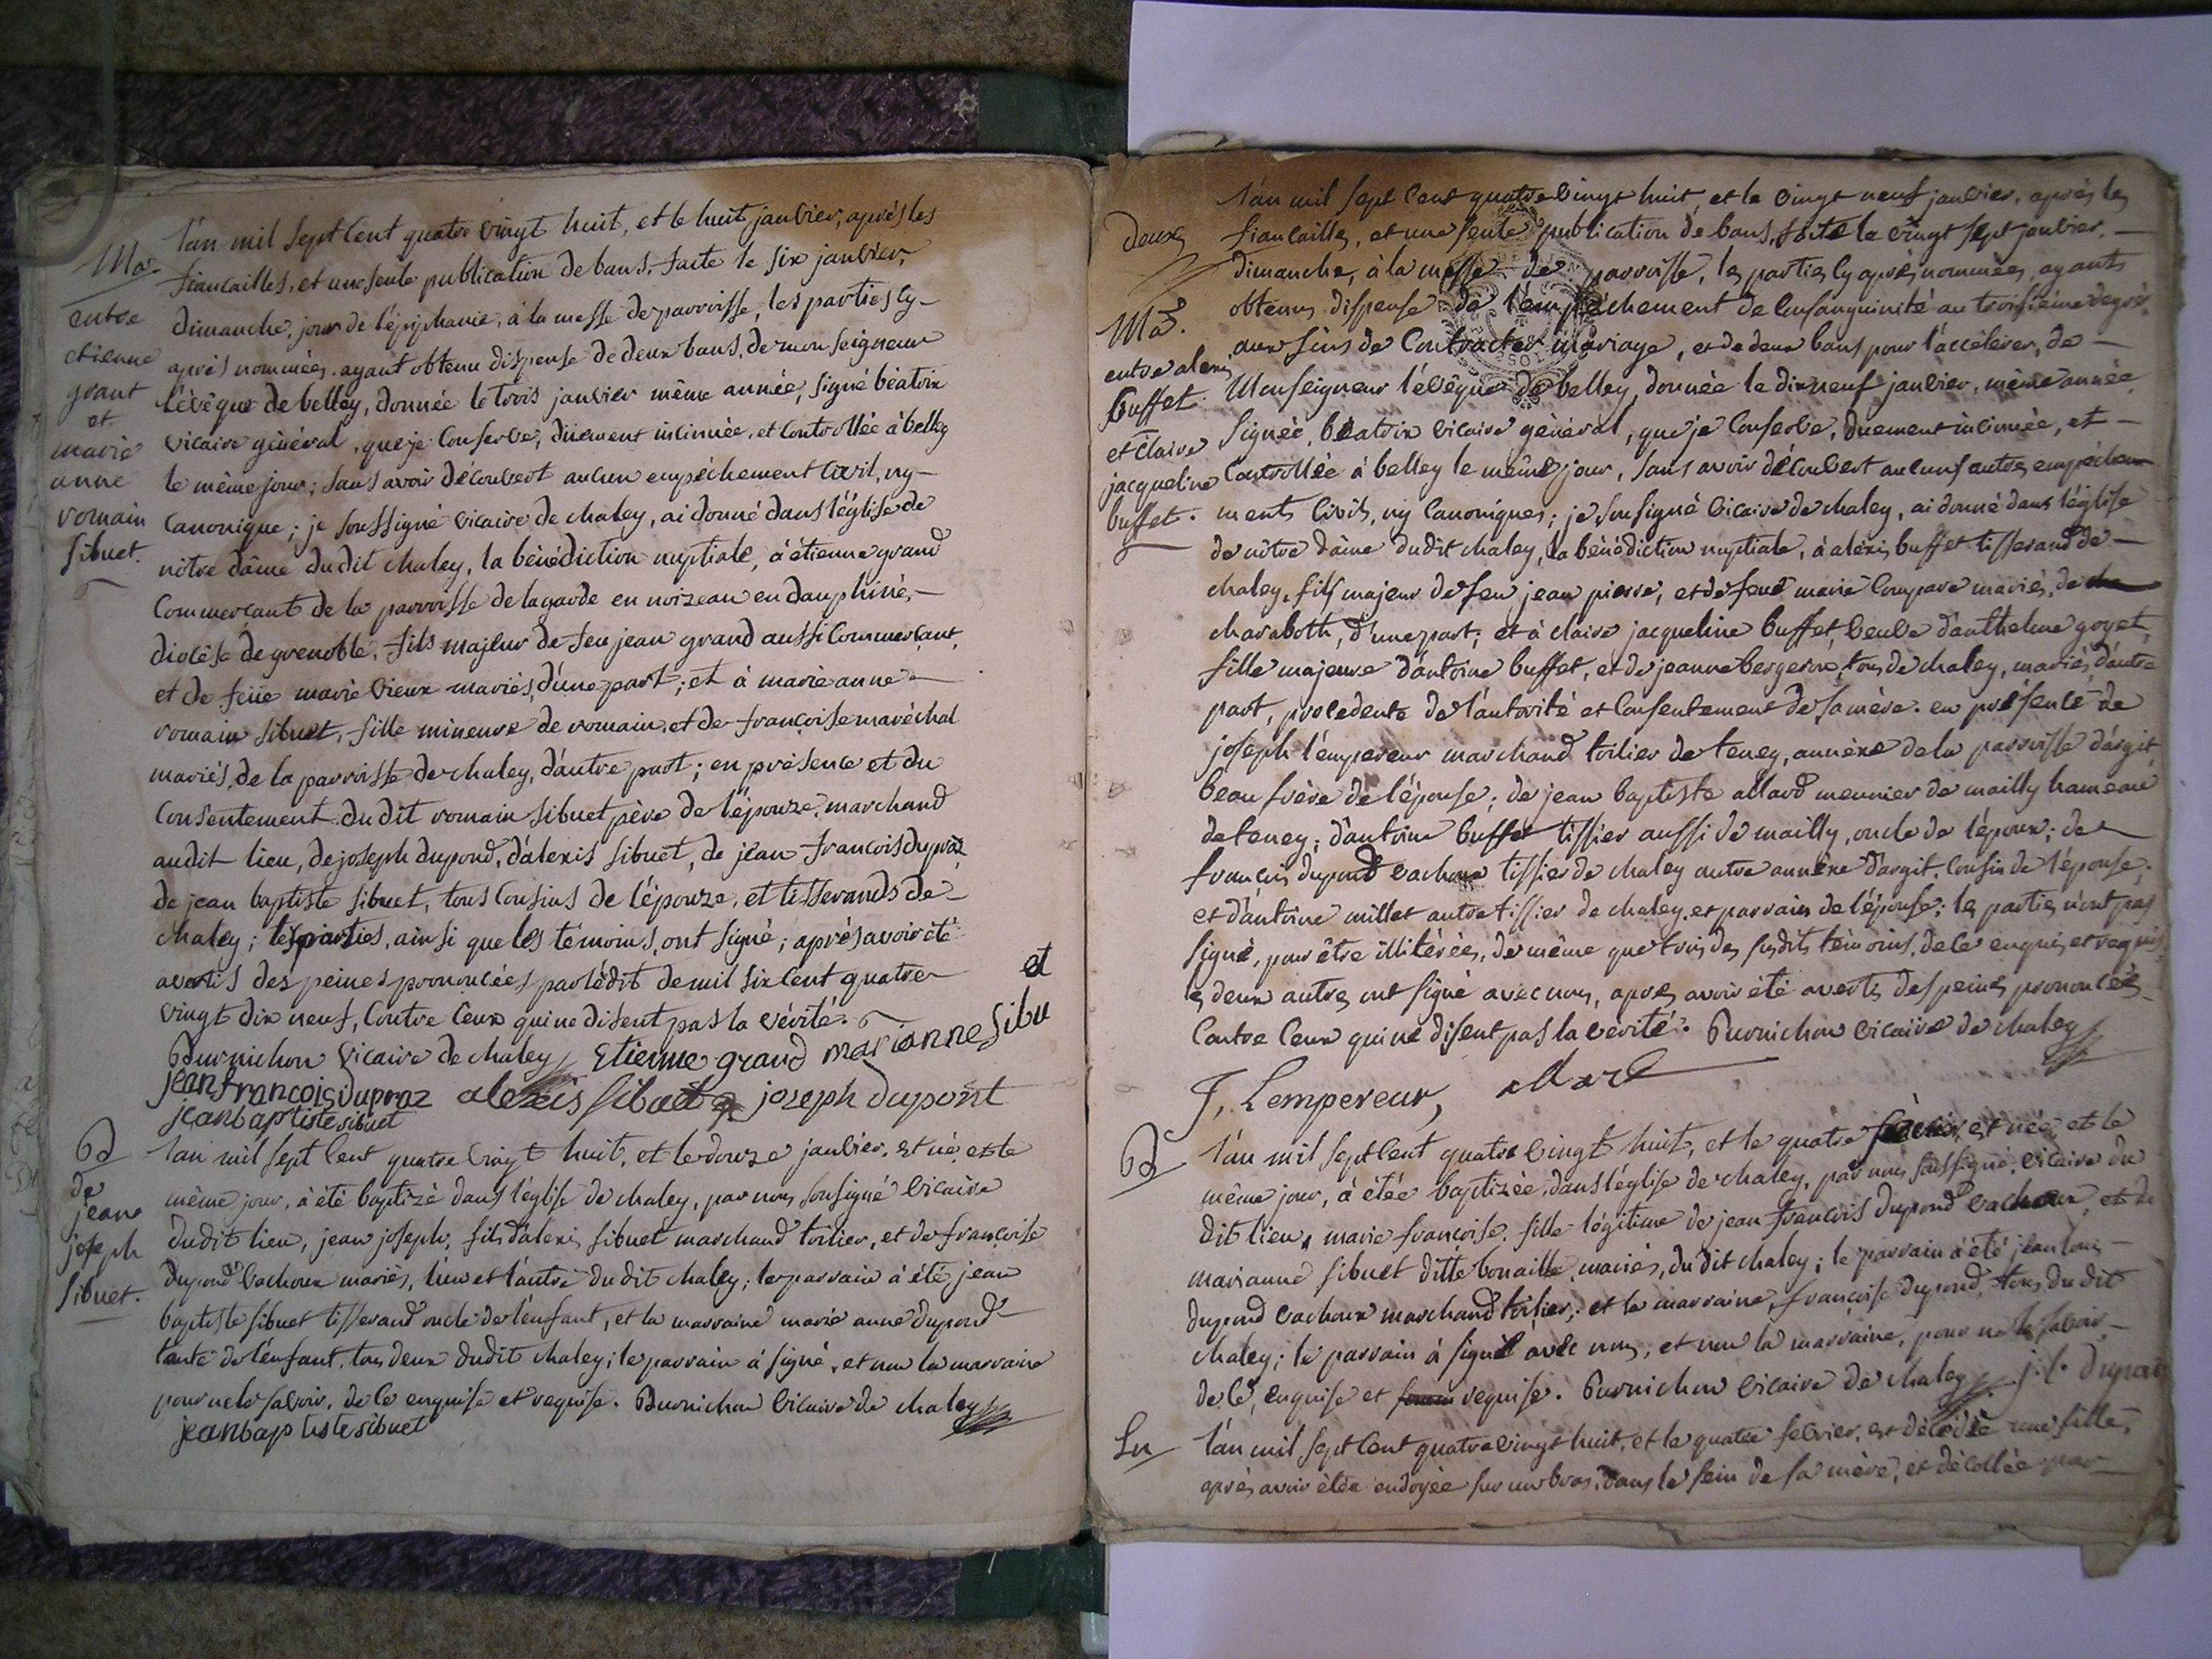 l'an mil sept cent quatre vingt huit, et le huit janvier, après les
Ma. fiancailles, et une seule publication de bans, faite le six janvier,
entre dimanche, jour de l'épiphanie, à la messe de parroisse, les parties cy-
etienne après nommées, ayant obtenu dispense de deux bans, de monseigneur
grant l'évêque de belley, donnée le trois janvier même année, signé béatrix
et vicaire général, que je conserve, düement insinuée, et controllée à belley
marie anne le même jour; sans avoir découvert aucun empêchement civil, ny-
romain canonique; je soussigné vicaire de chaley, ai donné dans l'église de
sibuet. nôtre dâme du dit chaley, la bénédiction nuptiale, à étienne grand
commerçant de la parroisse de lagarde en noizeau en dauphiné,-
diocèse de grenoble, fils majeur de feu jean grand aussi commerçant,
et de feüe marie vieux mariés, d'une part; et à marie anne-
romain sibuet, fille mineure de romain, et de françoise maréchal
mariés, de la parroisse de chaley, d'autre part; en présence et du
consentement du dit romain sibuet père de l'épouze, marchand
audit lieu, de joseph dupond, d'alexis sibuet, de jean françois dupraz,
de jean baptiste sibuet, tous cousins de l'épouze, et tisserands de-
chaley; les parties, ainsi que les témoins, ont signé; après avoir été
avertis des peines prononcées par l'édit de mil six cent quatre-
vingt dix neuf, contre ceux qui ne disent pas la vérité.
Burnichon vicaire de chaley Etienne grand marianne sibu et
jean françois dupraz alexis sibuet joseph dupont
jean baptiste sibuet
B l'an mil sept cent quatre vingt huit, et le douze janvier, est né, et le
de même jour, à été baptizé dans l'église de chaley, par nous sousigné vicaire
jean dudit lieu, jean joseph, fils d'alexis sibuet marchand toilier, et de françoise
joseph dupond vachoux mariés, l'un et l'autre du dit chaley; le parrain à été jean
sibuet. baptiste sibuet tisserand oncle de l'enfant, et la marraine marie anne dupond
tante de l'enfant, tous deux dudit chaley; le parrain à signé, et non la marraine
pour ne le savoir, de ce enquise et requise. Burnichon vicaire de chaley
jean baptiste sibuet
l'an mil sept cent quatre vingt huit, et le vingt neuf janvier, après les
deux fiancailles, et une seule publication de bans, faite le vingt sept janvier,-
dimanche, à la messe de parroisse, les parties cy après nommées, ayants
Ma. obtenus dispense de l'empêchement de consanguinité au troisième degré,
entre alexis aux fins de contracter mariage, et de deux bans pour l'accélérer, de-
buffet. Monseigneur l'évêque de belley, donnée le dix neuf janvier, même année
et claire signée, béatrix vicaire général, que je conserve, duement insinuée, et-
jacqueline controllée à belley le même jour, sans avoir découvert aucuns autres empêche
buffet. ments civils, ny canoniques; je sousigné vicaire de chaley, ai donné dans l'église
de nôtre dâme du dit chaley, la bénédiction nuptiale, à alexis buffet tisserand de-
chaley, fils majeur de feu jean pierre, et de feue marie compare mariés, de
charaboth, d'une part; et à claire jacqueline buffet, veuve d'anthelme goyet,
fille majeure d'antoine buffet, et de jeanne bergeron, tous de chaley, mariés, d'autre
part, procedente de l'autorité et consentement de sa mère. en présence de
joseph l'empereur marchand toilier de teney, annèxe de la parroisse d'argit
beau frère de l'épouse; de jean baptiste allard meunier de mailly hameau
de teney; d'antoine buffet tissier aussi de mailly, oncle de l'époux; de
françois dupond vachoux tissier de chaley autre annèxe d'argit, cousin de l'épouse;
et d'antoine millet autre tissier de chaley, et parrain de l'épouse; les parties n'ont pas
signé, pour être illitérées, de même que trois des susdits témoins, de ce enquis et requis,
les deux autres ont signé avec nous, après avoir été avertis des peines prononcées-
contre ceux qui ne disent pas la vérité. Burnichon vicaire de chaley
J, Lempereur, allard
B l'an mil sept cent quatre vingt huit, et le quatre février, est née, et le
même jour, à étée baptizée, dans l'église de chaley, par nous soussigné, vicaire du
dit lieu, marie françoise, fille légitime de jean françois dupond vachoux, et de
marianne sibuet ditte bonaille, mariés, du dit chaley; le parrain à été jean louis
dupond vachoux marchand toilier; et la marraine, françoise dupond, tous du dit
chaley; le parrain à signé avec nous, et non la marraine, pour ne le savoir,-
de ce, enquise et requise. Burnichon vicaire de chaley. j. l. dupon
l'an mil sept cent quatre vingt huit, et le quatre février, est décédée une fille,
après avoir étée ondoyée sur un bras, dans le sein de sa mère, et décollée par